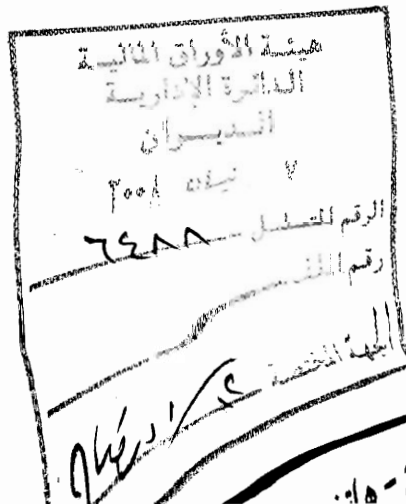 هيئة الأوراق المالية
الدائرة الإدارية
الديوان
٧ نيسان ٢٠٠٨
الرقم المتسلسل ٦٤٨٨
رقم الملف
الجهة المختصة